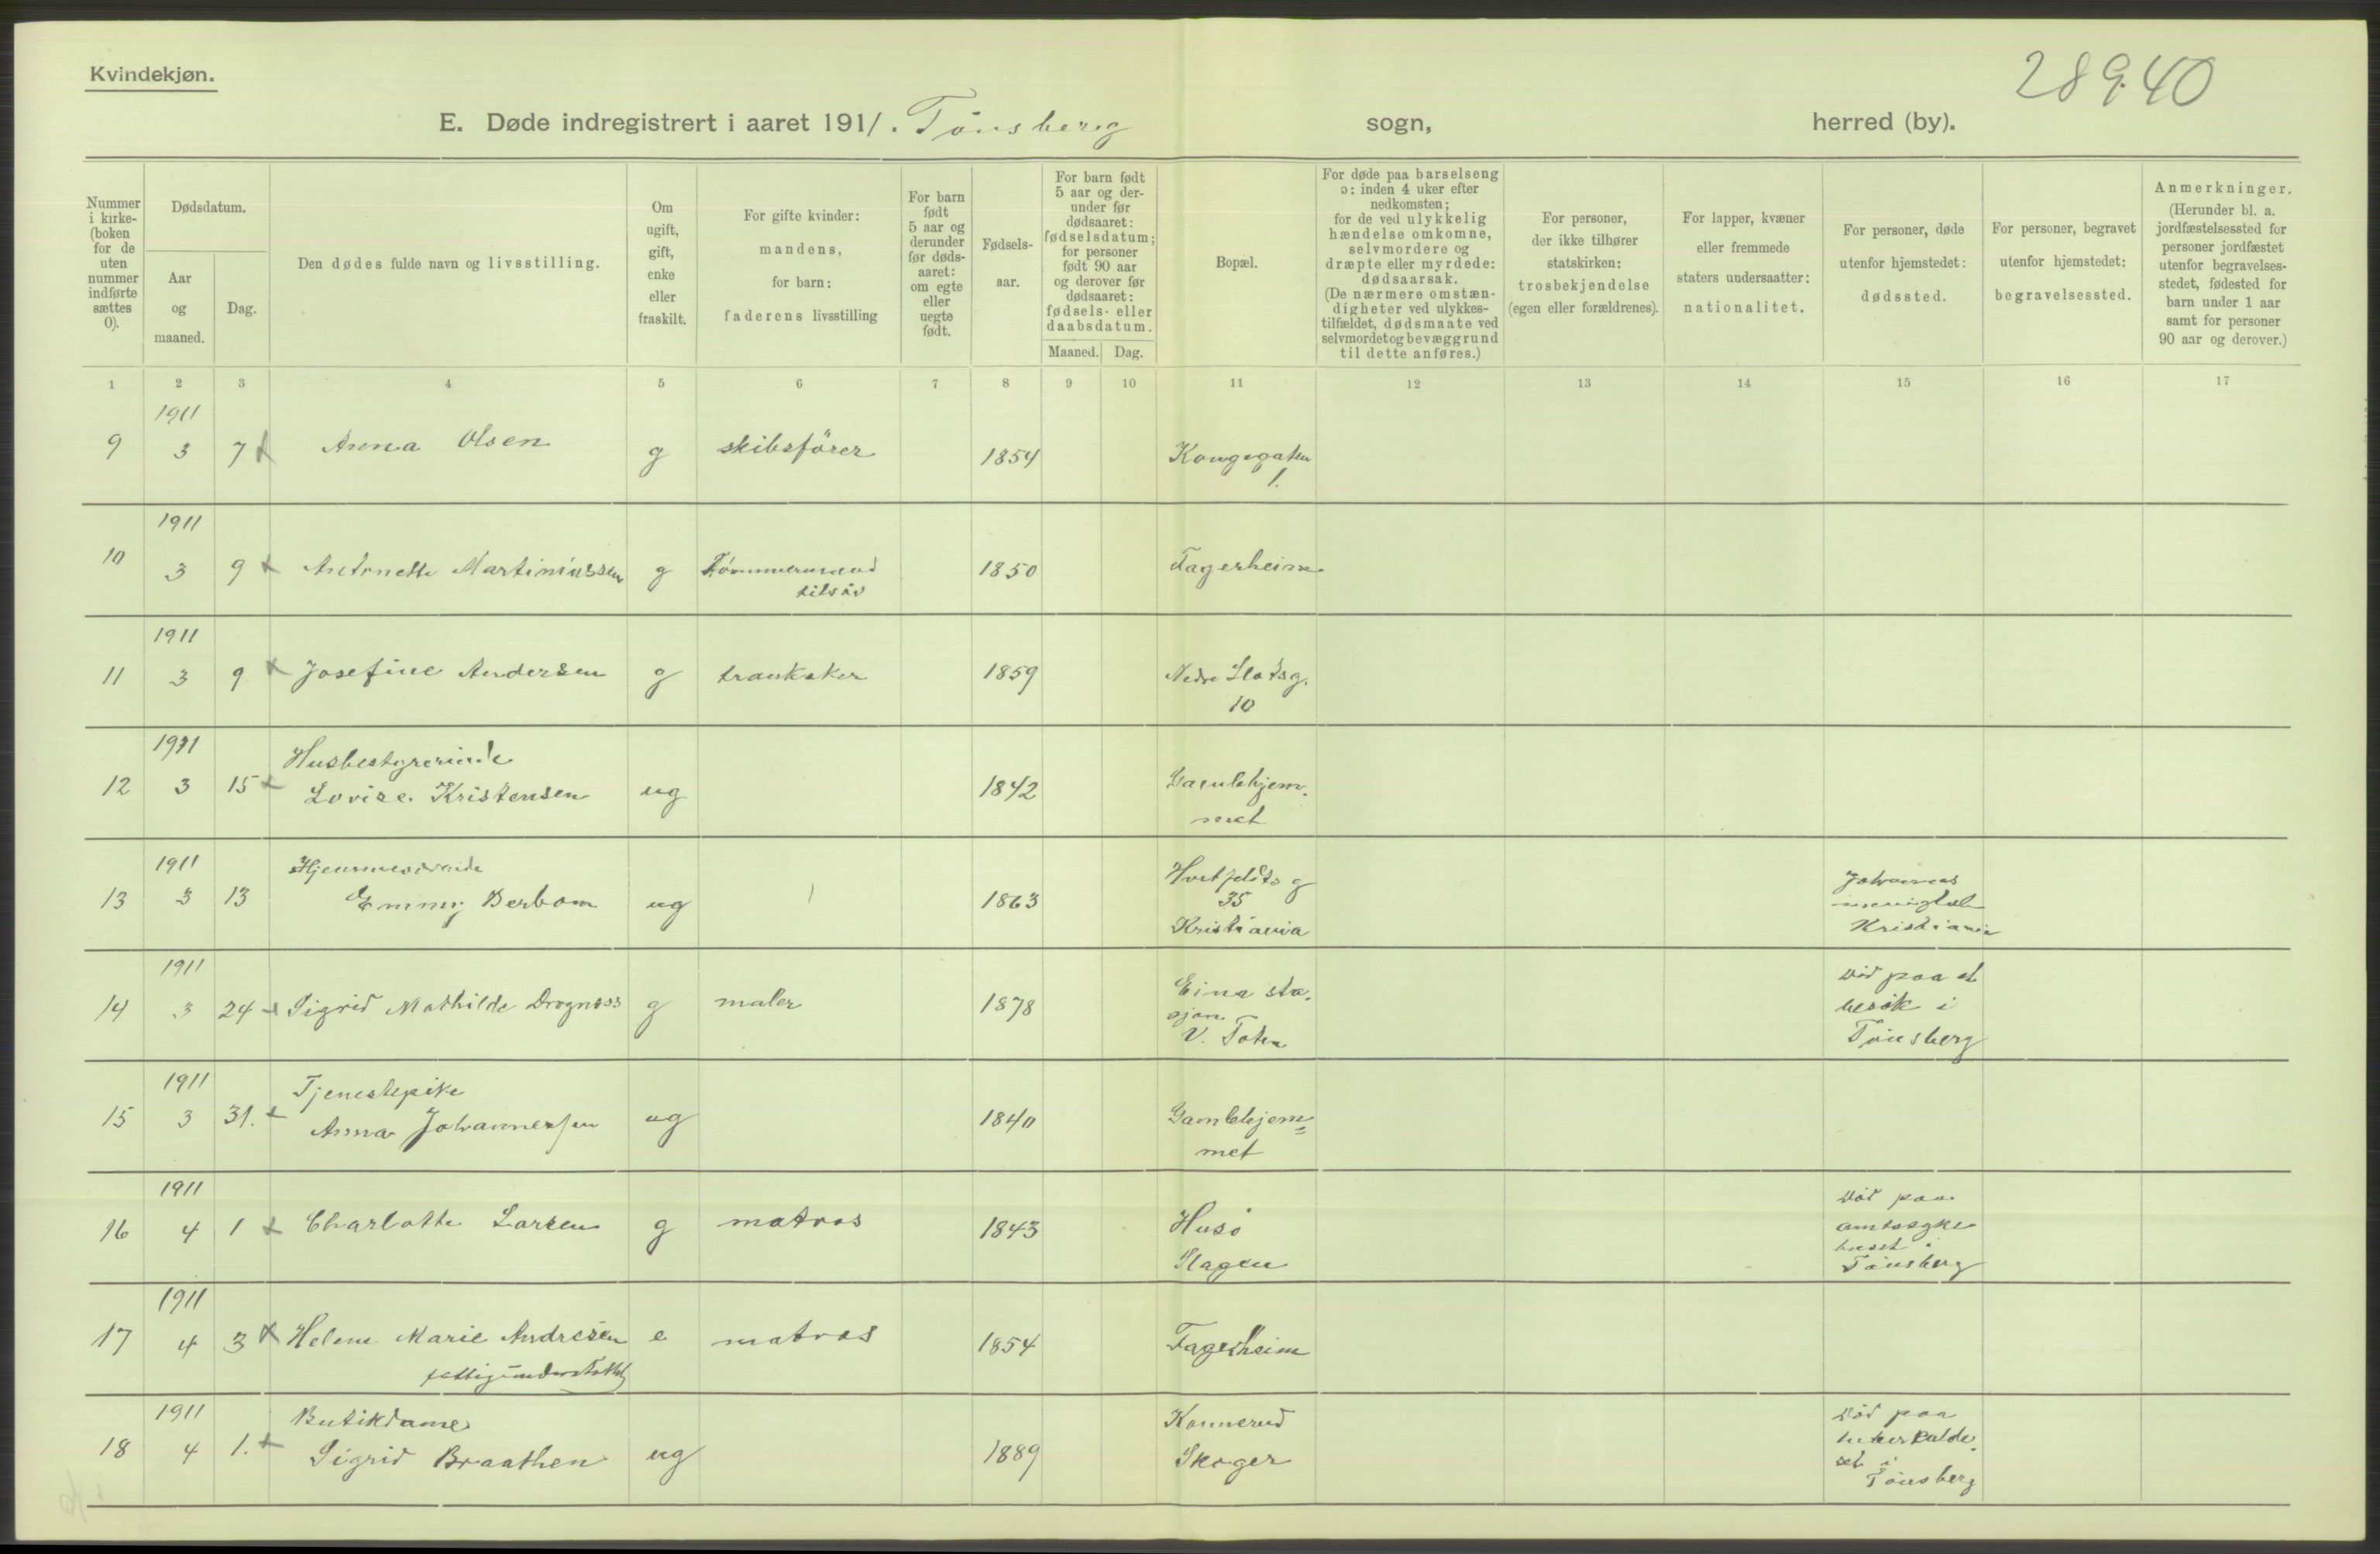 Kvindekjøn.
28940
E. Døde indregistrert i aaret 1911. Tönsberg sogn, herred (by).
Nummer i kirke-(boken for de uten nummer indførte sættes 0).
Dødsdatum.
Aar og maaned.
Dag.
Den dødes fulde navn og livsstilling.
Om ugift, gift, enke eller fraskilt.
For gifte kvinder: mandens, for barn: faderens livsstilling
For barn født 5 aar og derunder før døds-aaret: om egte eller uegte født.
Fødsels-aar.
For barn født 5 aar og der-under før dødsaaret: fødselsdatum; for personer født 90 aar og derover før dødsaaret: fødsels- eller daabsdatum.
Maaned. Dag.
Bopæl.
For døde paa barselseng ɔ: inden 4 uker efter nedkomsten; for de ved ulykkelig hændelse omkomne, selvmordere og dræpte eller myrdede: dødsaarsak. (De nærmere omstæn-digheter ved ulykkes-tilfældet, dødsmaate ved selvmordet og bevæggrund til dette anføres.)
For personer, der ikke tilhører statskirken: trosbekjendelse (egen eller forældrenes).
For lapper, kvæner eller fremmede staters undersaatter: nationalitet.
For personer, døde utenfor hjemstedet: dødssted.
For personer, begravet utenfor hjemstedet: begravelsessted.
Anmerkninger. (Herunder bl. a. jordfæstelsessted for personer jordfæstet utenfor begravelses-stedet, fødested for barn under 1 aar samt for personer 90 aar og derover.)
1 2 3 4 5 6 7 8 9 10 11 12 13 14 15 16 17
1911
9 3 7 Anna Olsen g skibsförer 1854 Kongegaten
1.
1911
10 3 9 Antonette Martiniussen g Tömmermand 1850 Fagerheim
1911
11 3 9 Josefine Andersen g trankoker 1859 Nedre Slotsg.
10
1911
Husbestyrerinde
12 3 15 Lovise Kristensen ug 1842 Gamlehjem-
met
1911
Hjemmeværende
13 3 13 Emmy Berbom ug 1863
35
Kristiania
Kristiania
1911
14 3 24 Sigrid Mathilde Drognæss g maler 1878 Eina sta-
sjon
V. Toten
död paa et
besök i
Tönsberg
1911
Tjenestepike
15 3 31. Anna Johannessen ug 1840 Gamlehjem=
met
1911
16 4 1 Charlotte Larsen g matros 1843 Husö
Slagen
död paa
amtssyke
huset i
Tönsberg
1911
17 4 3 Helene Marie Andresen e matros 1854 Fagerheim
fattigunderstöttet
1911
Butikdame
18 4 1. Sigrid Braathen ug 1889 Konnerud
Skoger
död paa
set i
Tönsberg